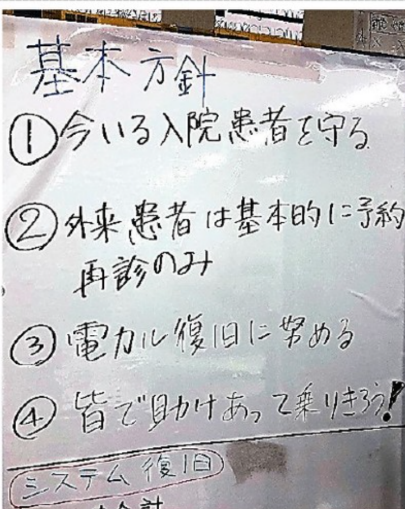 基本方針
①今いる入院患者を守る
②外来患者は基本的に予約
再診のみ
③電カル復旧に努める
④皆で助けあって乗りきろう!
システム復旧